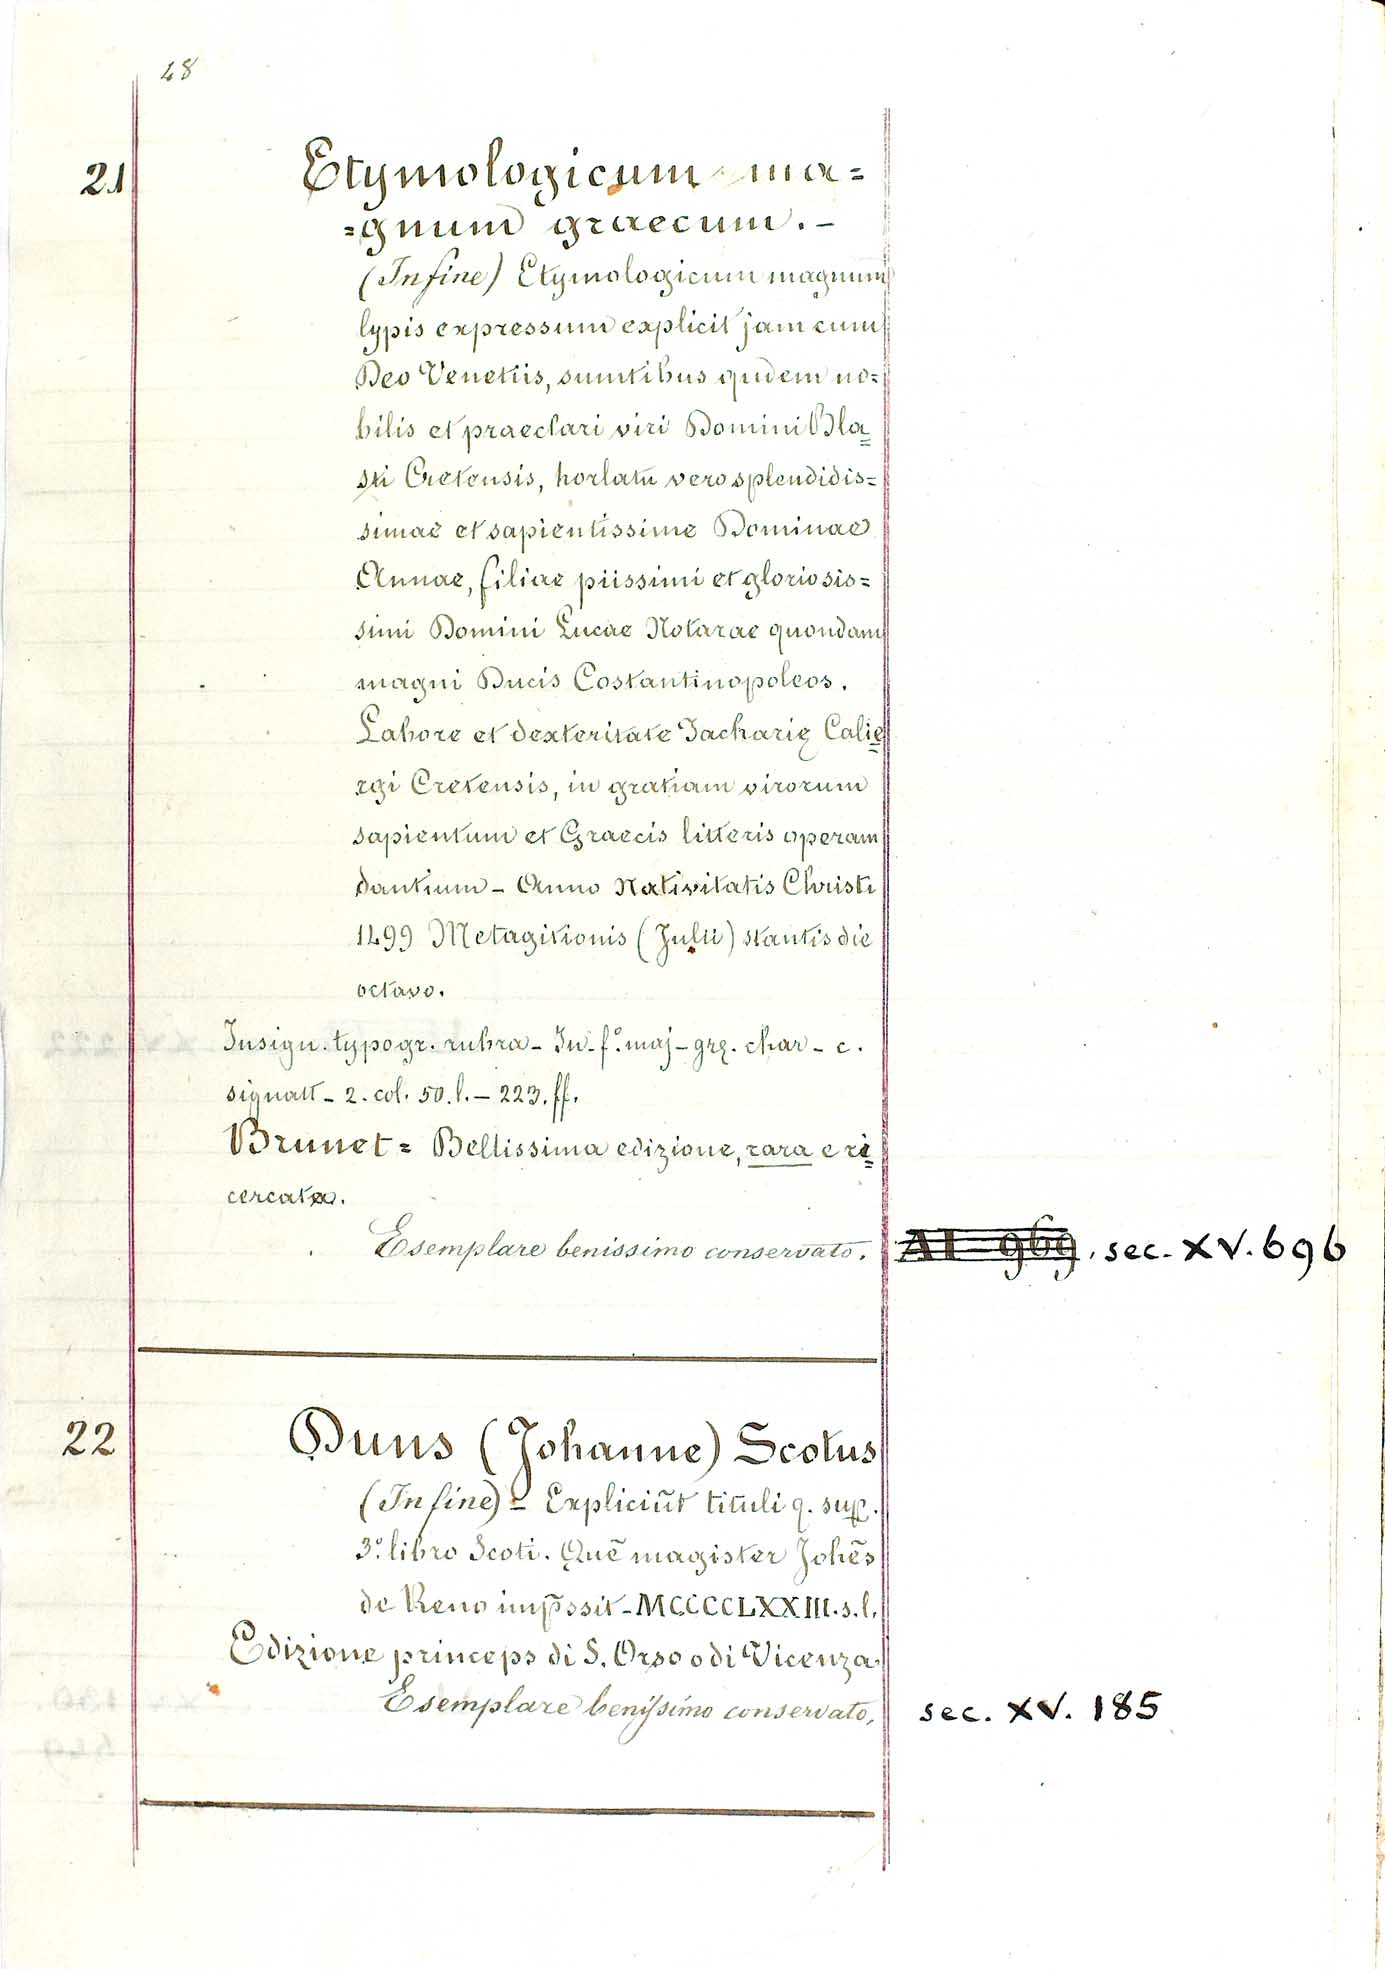 48
21
Etymologicum ma=
=gnum graecum. -
(In fine) Etymologicum magnum
typis expressum explicit jam cum
Deo Venetiis, sumtibus quidem no=
bilis et praeclari viri Domini Bla=
sti Cretensis, hortatu vero splendidis=
simae et sapientissime Dominae
Annae, filiae piissimi et gloriosis=
simi Domini Lucae Notarae quondam
magni Ducis Costantinopoleos.
Labore et dexteritate Zacharię Calie=
rgi Cretensis, in gratiam virorum
sapientum et Graecis litteris operam
dantium - Anno Nativitatis Christi
1499 Metagitionis (Julii) stantis die
octavo.
Insign. typogr. rubra - In-f.º maj - grę. char - c.
signatt - 2. col. 50. l. - 223. ff.
Brunet = Bellissima edizione, rara e ri=
cercata.
Esemplare benissimo conservato.
AI 969. sec. XV. 696
22
Duns (Johanne) Scotus
(In fine) = Expliciūt tituli q. sup.
3.º libro Scoti. Quē magister Johēs
de Reno imp̄ssit - MCCCCLXXIII. s. l.
Edizione princeps di S. Orso o di Vicenza.
Esemplare benissimo conservato.
sec. XV. 185